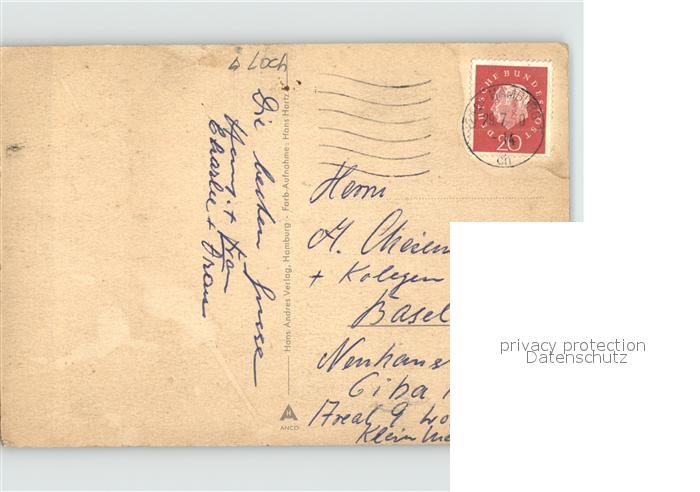 4 Loch
Die besten Grüsse
Henri + Frau
Charlie + Frau
Hans Andres Verlag, Hamburg - Farb-Aufnahme: Hans Hartz
ANCO
DEUTSCHE BUNDESPOST
20
Herrn
+ Kolegen
Basel
Neuhaus
Ciba
9
privacy protection
Datenschutz